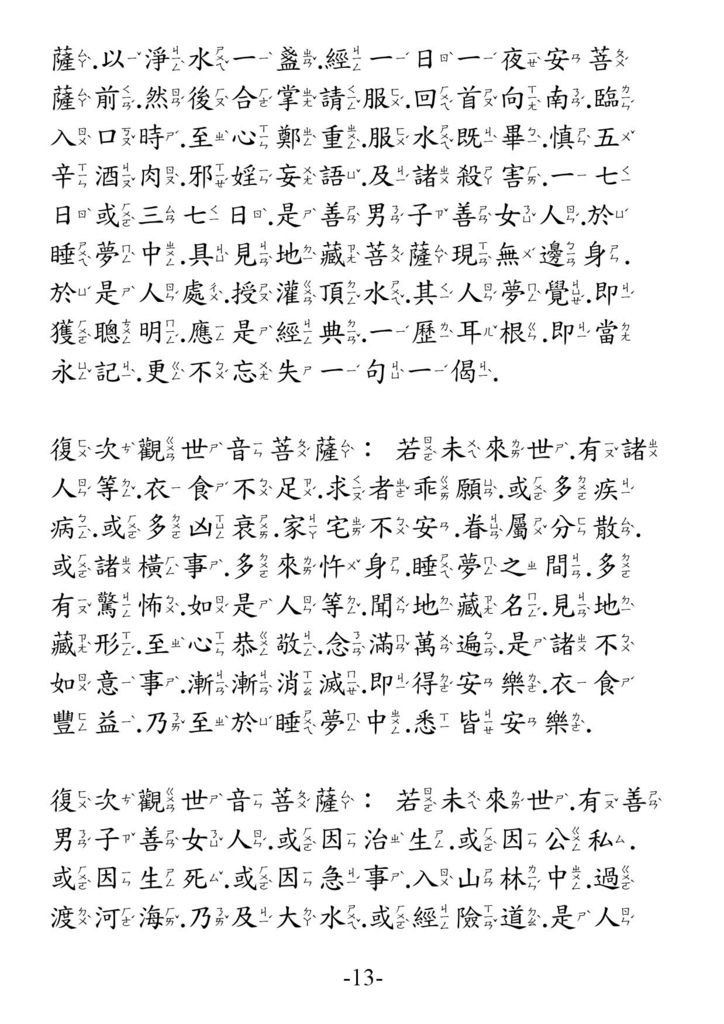 薩.以淨水一盞.經一日一夜安菩
薩前.然後合掌請服.回首向南.臨
入口時.至心鄭重.服水既畢.慎五
辛酒肉.邪婬妄語.及諸殺害.一七
日或三七日.是善男子善女人.於
睡夢中.具見地藏菩薩現無邊身.
於是人處.授灌頂水.其人夢覺.即
獲聰明.應是經典.一歷耳根.即當
永記.更不忘失一句一偈.
復次觀世音菩薩： 若未來世.有諸
人等.衣食不足.求者乖願.或多疾
病.或多凶衰.家宅不安.眷屬分散.
或諸橫事.多來忤身.睡夢之間.多
有驚怖.如是人等.聞地藏名.見地
藏形.至心恭敬.念滿萬遍.是諸不
如意事.漸漸消滅.即得安樂.衣食
豐益.乃至於睡夢中.悉皆安樂.
復次觀世音菩薩： 若未來世.有善
男子善女人.或因治生.或因公私.
或因生死.或因急事.入山林中.過
渡河海.乃及大水.或經險道.是人
-13-